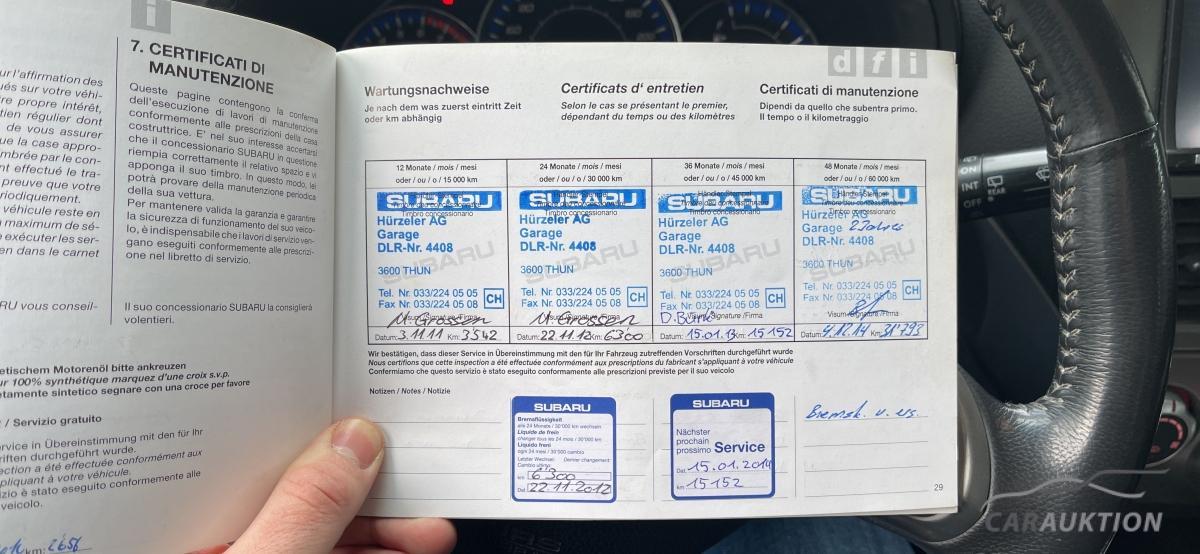 i
7. CERTIFICATI DI
MANUTENZIONE
Queste pagine contengono la conferma
dell'esecuzione di lavori di manutenzione
conformemente alle prescrizioni della casa
costruttrice. E' nel suo interesse accertarsi
che il concessionario SUBARU in questione
riempia correttamente il relativo spazio e vi
apponga il suo timbro. In questo modo, lei
potrà provare della manutenzione periodica
della sua vettura.
Per mantenere valida la garanzia e garantire
la sicurezza di funzionamento del suo veico-
lo, è indispensabile che i lavori di servizio ven-
gano eseguiti conformemente alle prescrizi-
one nel libretto di servizio.
Il suo concessionario SUBARU la consiglierà
volentieri.
ur l'affirmation des
ués sur votre véhi-
re propre intérêt,
tien régulier dont
de vous assurer
ue la case appro-
mbrée par le con-
nt effectué le tra-
preuve que votre
riodiquement.
véhicule reste en
maximum de sé-
exécuter les ser-
en dans le carnet
RU vous conseil-
etischem Motorenöl bitte ankreuzen
ur 100% synthétique marquez d'une croix s.v.p.
etamente sintetico segnare con una croce per favore
/ Servizio gratuito
rvice in Übereinstimmung mit den für Ihr
riften durchgeführt wurde.
ection a été effectuée conformément aux
pliquant à votre véhicule.
zio è stato eseguito conformemente alle
veicolo.
km: 2656
d f i
Wartungsnachweise
Je nach dem was zuerst eintritt Zeit
oder km abhängig
Certificats d' entretien
Selon le cas se présentant le premier,
dépendant du temps ou des kilomètres
Certificati di manutenzione
Dipendi da quello che subentra primo.
Il tempo o il kilometraggio
12 Monate / mois / mesi
oder / ou / o / 15 000 km
SUBARU
Timbro concessionario
Hürzeler AG
Garage
DLR-Nr. 4408
SUBARU
3600 THUN
Tel. Nr. 033/224 05 05
Fax Nr. 033/224 05 08
CH
M. Grossen
Datum: 3.11.11 Km: 3342
24 Monate / mois / mesi
oder / ou / o / 30 000 km
SUBARU
Timbro concessionario
Hürzeler AG
Garage
DLR-Nr. 4408
SUBARU
3600 THUN
Tel. Nr. 033/224 05 05
Fax Nr. 033/224 05 08
CH
M. Grossen
Datum: 22.11.12 Km: 6300
36 Monate / mois / mesi
oder / ou / o / 45 000 km
Händler-Stempel
SUBARU
Timbro concessionario
Hürzeler AG
Garage
DLR-Nr. 4408
SUBARU
3600 THUN
Tel. Nr. 033/224 05 05
Fax Nr. 033/224 05 08
CH
Visum/Signature/Firma
Datum: 15.01.13 Km: 15 152
48 Monate / mois / mesi
oder / ou / o / 60 000 km
Händler-Stempel
SUBARU
Timbro concessionario
Hürzeler AG
Garage 2 Jahres
DLR-Nr. 4408
SUBARU
3600 THUN
Tel. Nr. 033/224 05 05
Fax Nr. 033/224 05 08
CH
Visum/Signature/Firma
Datum: 4.12.14 Km: 31'793
Wir bestätigen, dass dieser Service in Übereinstimmung mit den für Ihr Fahrzeug zutreffenden Vorschriften durchgeführt wurde
Nous certifions que cette inspection a été effectuée conformément aux prescriptions du fabricant s'appliquant à votre véhicule
Confermiamo che questo servizio è stato eseguito conformemente alle prescrizioni previste per il suo veicolo
Notizen / Notes / Notizie
SUBARU
Bremsflüssigkeit
alle 24 Monate / 30'000 km wechseln
Liquide de frein
changer tous les 24 mois / 30'000 km
Liquido freni
ogni 24 mesi / 30'000 cambiare
Letzter Wechsel: Dernier changement:
Cambio ultimo:
km 6300
Dat. 22.11.2012
SUBARU
Nächster
prochain
prossimo Service
Dat. 15.01.2014
km 15152
Bremsk. v. us.
29
INT
REAR
OFF
CARAUKTION